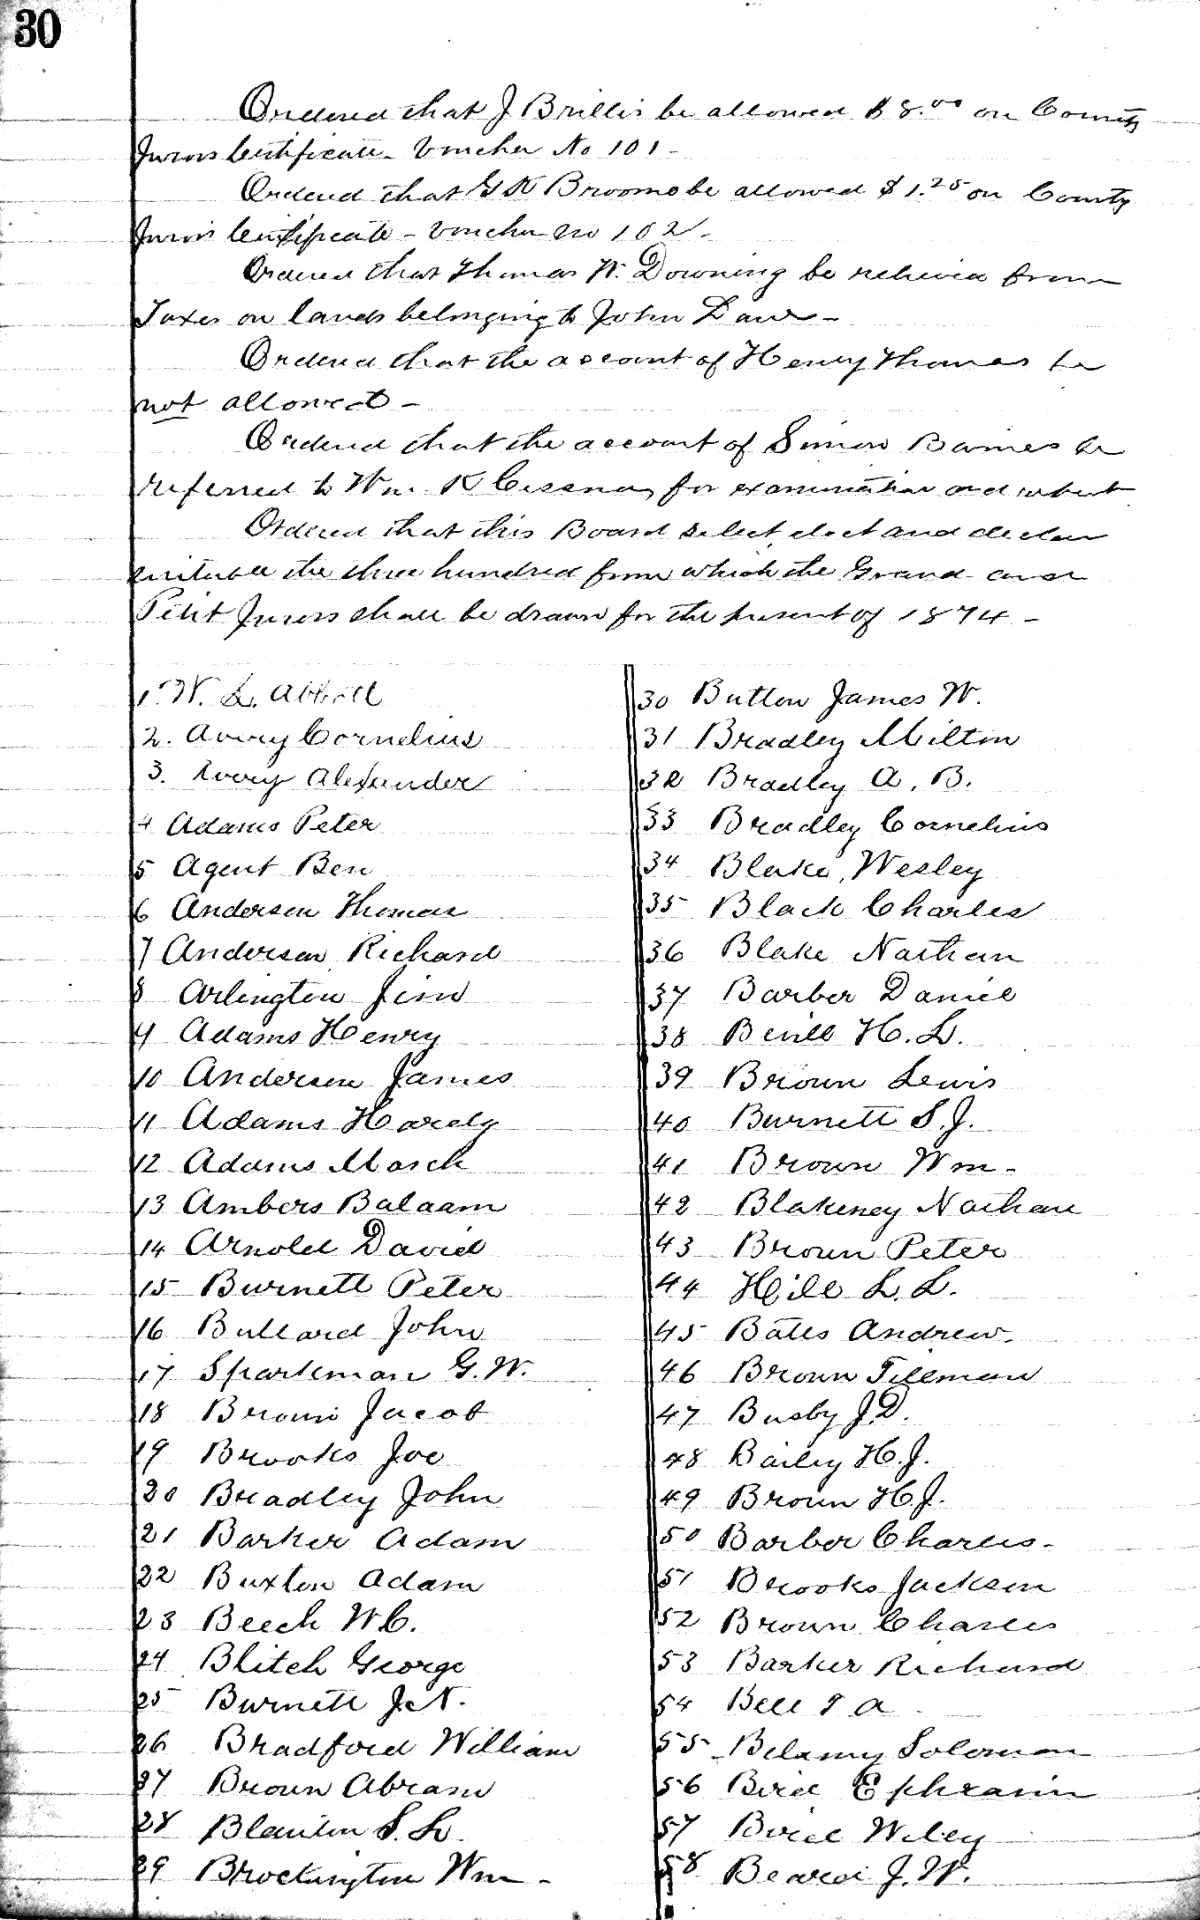 30
Ordered that J Brillis be allowed $8.00 on County
Jurors Certificate - Voucher No 101 -
Ordered that G K Broome be allowed $1.25 on County
Jurors Certificate - Voucher No 102 -
Ordered that Thomas W. Downing be relieved from
Taxes on lands belonging to John Dand -
Ordered that the account of Henry Thomas be
not allowed -
Ordered that the account of Simon Barnes be
referred to Wm. K Cessna, for examination and report
Ordered that this Board select, elect and declare
suitable the three hundred from which the Grand and
Petit Jurors shall be drawn for the present of 1874 -
1. W. L. Abbott
2. Avery Cornelius
3. Avery Alexander
4 Adams Peter
5 Agent Ben
6 Anderson Thomas
7 Anderson Richard
8 Arlington Jim
9 Adams Henry
10 Anderson James
11 Adams Hardy
12 Adams March
13 Ambers Balaam
14 Arnold David
15 Burnett Peter
16 Bullard John
17 Sparkman G. W.
18 Brown Jacob
19 Brooks Joe
20 Bradley John
21 Barker Adam
22 Buxton Adam
23 Beech W C.
24 Blitch George
25 Burnett J. N.
26 Bradford William
27 Brown Abram
28 Blanton S. L.
29 Brockington Wm -
30 Button James W.
31 Bradley Milton
32 Bradley A. B.
33 Bradley Cornelius
34 Blake, Wesley
35 Black Charles
36 Blake Nathan
37 Barber Daniel
38 Bevill H. L.
39 Brown Lewis
40 Burnett S. J.
41 Brown Wm -
42 Blakeney Nathan
43 Brown Peter
44 Hill L. L.
45 Bates Andrew.
46 Brown Tillman
47 Busby J. D.
48 Bailey H. J.
49 Brown H J.
50 Barber Charles -
51 Brooks Jackson
52 Brown Charles
53 Barker Richard
54 Bell A
55 Belamy Soloman
56 Bird Ephraim
57 Bird Wiley
58 Beard J. W.